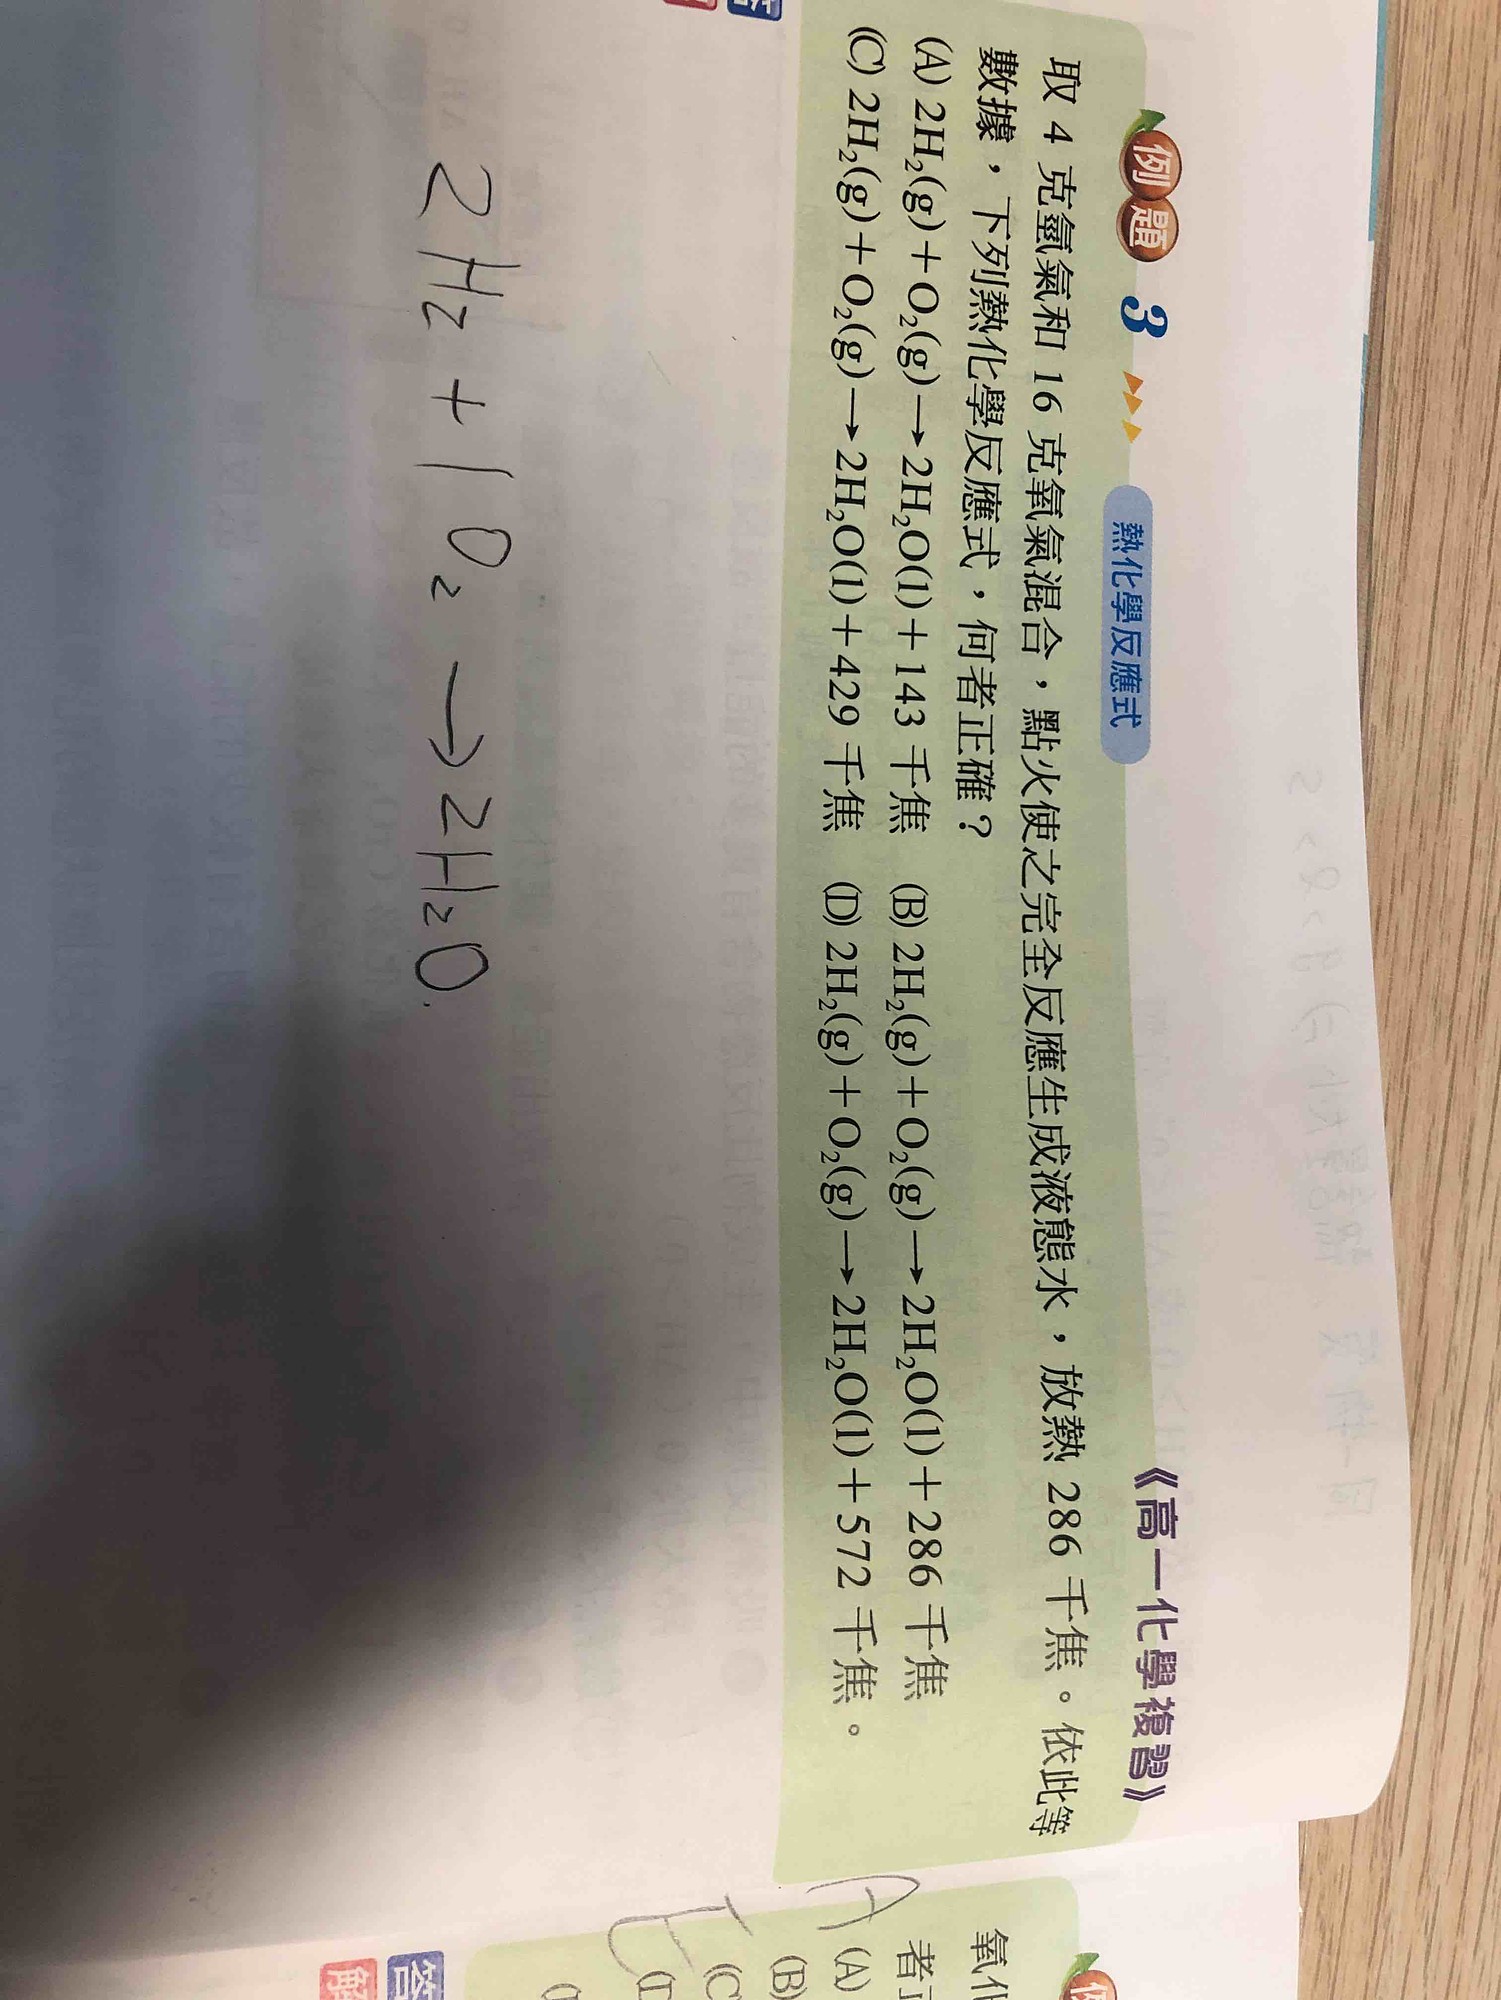 例題 3 熱化學反應式 《高一化學複習》
取 4 克氫氣和 16 克氧氣混合，點火使之完全反應生成液態水，放熱 286 千焦。依此等
數據，下列熱化學反應式，何者正確？
(A) 2H₂(g)＋O₂(g)→2H₂O(l)＋143 千焦 (B) 2H₂(g)＋O₂(g)→2H₂O(l)＋286 千焦
(C) 2H₂(g)＋O₂(g)→2H₂O(l)＋429 千焦 (D) 2H₂(g)＋O₂(g)→2H₂O(l)＋572 千焦。
2H₂ + 1O₂ → 2H₂O.
氧化
者
(A)
(B)
(C
答
解